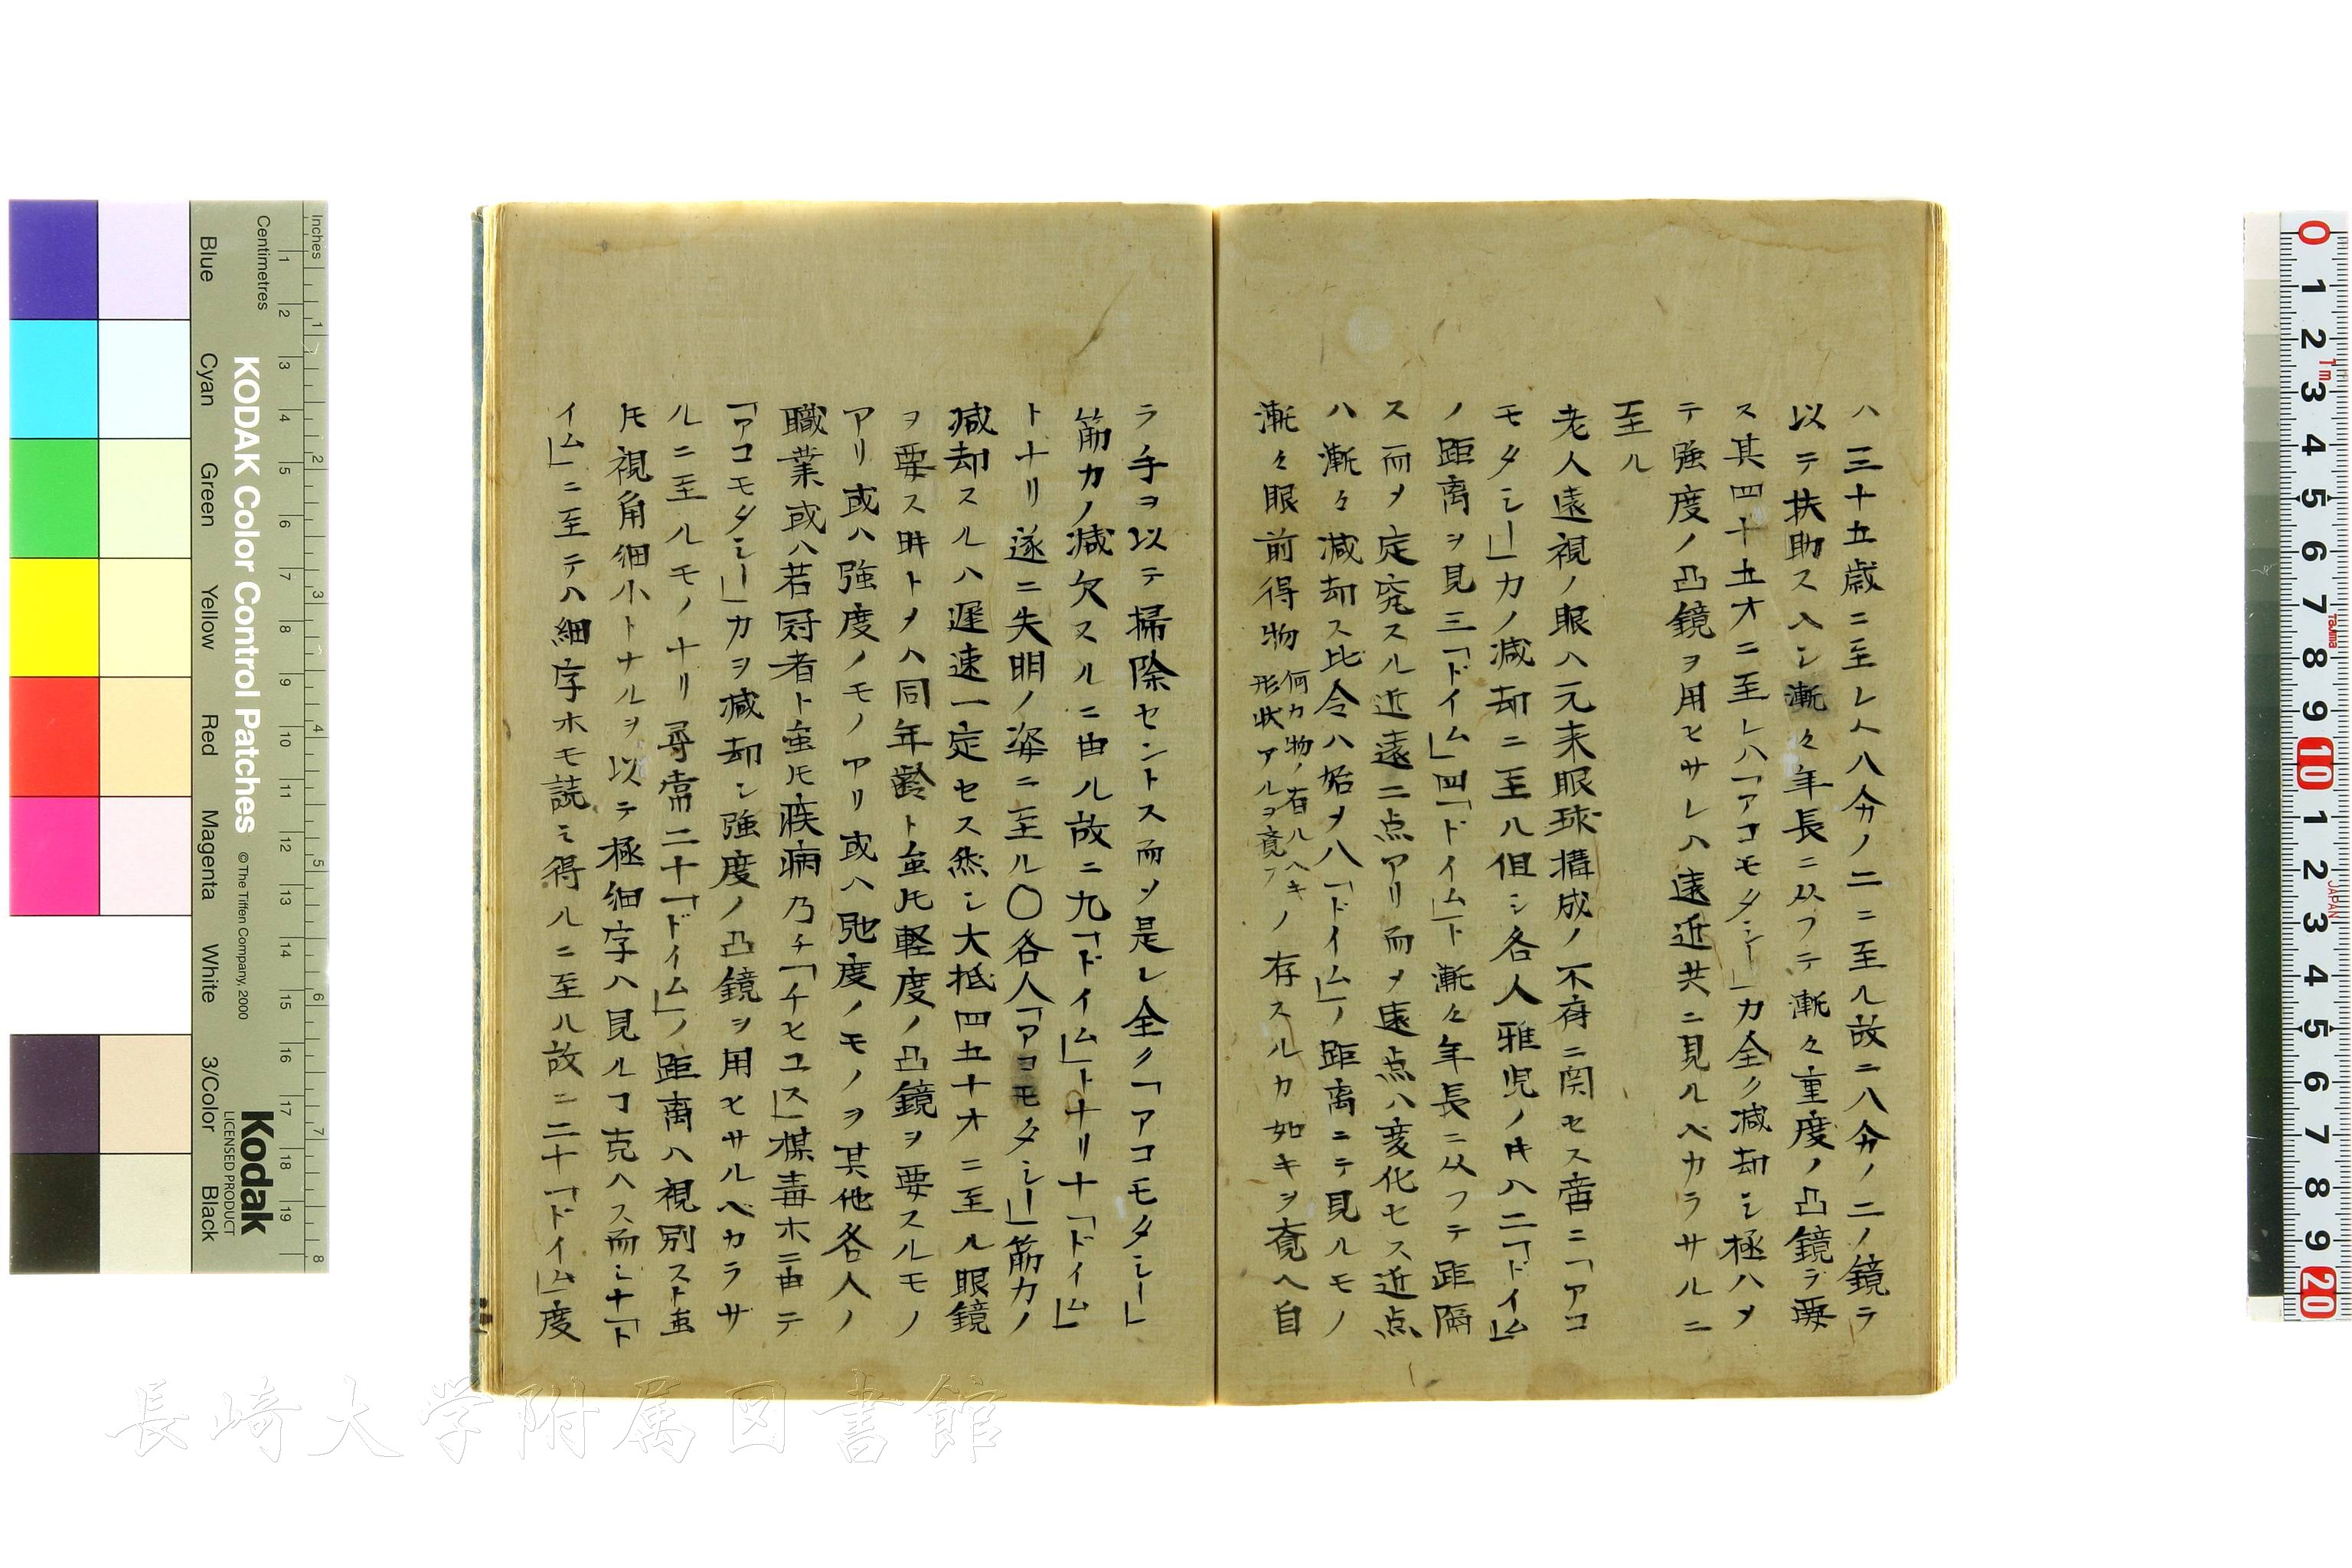 ハ三十五歳ニ至レハ八分ノ二ニ至ル故ニ八分ノ二ノ鏡ヲ
以テ扶助スヘシ漸々年長ニ从フテ漸々重度ノ凸鏡ヲ要
ス其四十五才ニ至レハ「アコモダシー」力全ク減却シ極ハメ
テ強度ノ凸鏡ヲ用ヒサレハ遠近共ニ見ルベカラサルニ
至ル
老人遠視ノ眼ハ元来眼球搆成ノ不存ニ関セス啻ニ「アコ
モタシー」力ノ減却ニ至ル但シ各人雅児ノ時ハ二「ドイム」
ノ距离ヲ見三「ドイム」四「ドイム」ト漸々年長ニ从フテ距隔
ス而メ定究スル近遠二点アリ而メ遠点ハ変化セス近点
ハ漸々減却ス比令ハ始メ八「ドイム」ノ距离ニテ見ルモノ
漸々眼前得物何カ物ノ有ルヘキ形状アルヲ覚フノ存スルカ如キヲ覚ヘ自
ラ手ヲ以テ掃除セントス而メ是レ全ク「アコモタシー」
筋力ノ減欠スルニ由ル故ニ九「ドイム」トナリ十「ドイム」
トナリ遂ニ失明ノ姿ニ至ル〇各人「アコモタシー」筋力ノ
减却スルハ遅速一定セス然シ大抵四五十才ニ至ル眼鏡
ヲ要ス時トメハ同年齢ト虽トモ軽度ノ凸鏡ヲ要スルモノ
アリ或ハ強度ノモノアリ或ハ弛度ノモノヲ其他各人ノ
職業或ハ若冠者ト虽トモ疾病乃チ「チヒユス」楳毒ホニ由テ
「アコモダシー」力ヲ減却シ強度ノ凸鏡ヲ用ヒサルベカラサ
ルニ至ルモノナリ尋常二十「ドイム」ノ距离ハ視別スト虽
トモ視角細小トナルヲ以テ極細字ハ見ルコ克ハス而シ十「ド
イム」ニ至テハ細字ホモ読ミ得ルニ至ル故ニ二十「ドイム」度
Blue
Cyan
Green
Yellow
Red
Magenta
White
3/Color
Black
Inches
Centimetres
KODAK Color Control Patches
©The Tiffen Company, 2000
Kodak
LICENSED PRODUCT
長崎大学附属図書館